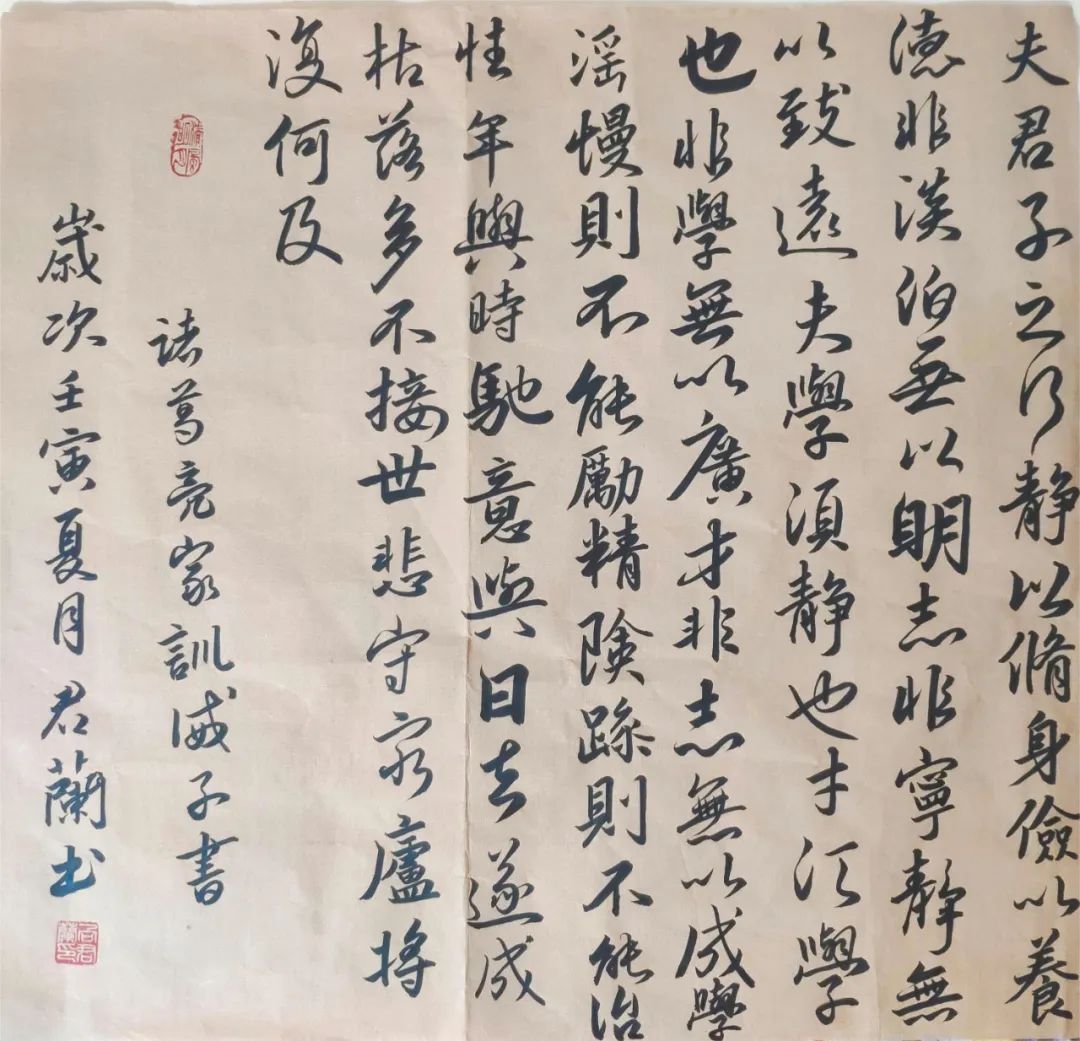 夫君子之行靜以脩身儉以養
德非淡泊無以明志非寧靜無
以致遠夫學須靜也才須學
也非學無以廣才非志無以成學
淫慢則不能勵精險躁則不能治
性年與時馳意與日去遂成
枯落多不接世悲守窮廬將
復何及
諸葛亮家訓誡子書
歲次壬寅夏月君蘭書